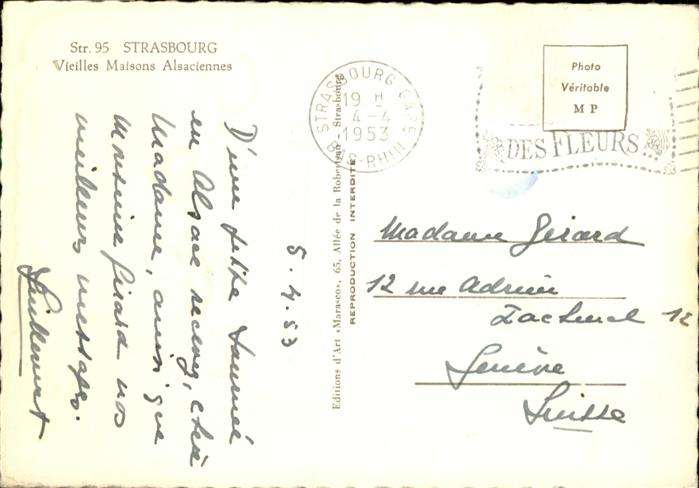 Str. 95 STRASBOURG
Vieilles Maisons Alsaciennes
5.4.53
D'une petite tournée
en Alsace recevez, chère
Madame, ainsi que
Monsieur Girard nos
meilleurs messages.
Editions d'Art «Marasco», 65, Allée de la Robertsau - Strasbourg
REPRODUCTION INTERDITE
STRASBOURG GARE
19 H
4-4
1953
BAS-RHIN
DES FLEURS
Photo
Véritable
M P
Madame Girard
12 rue Adrien
Lachenal 12
Genève
Suisse